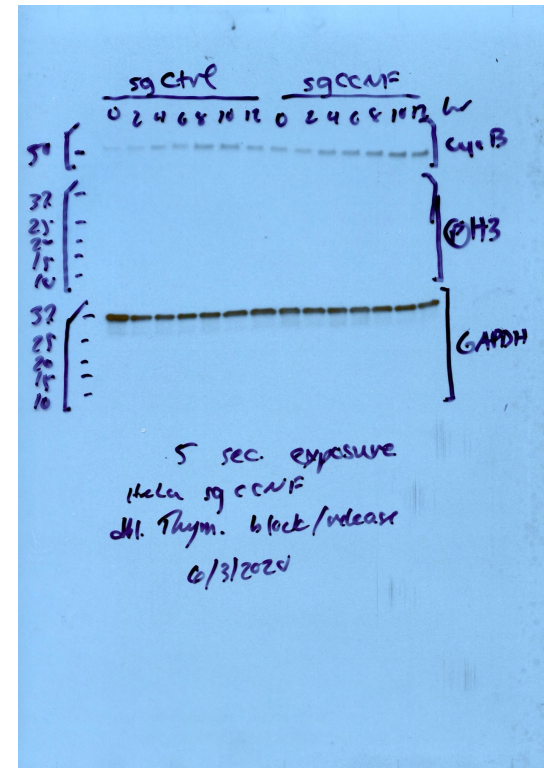 sg Ctrl sgCCNF
0 2 4 6 8 10 12 0 2 4 6 8 10 12 hr
50 CycB
37
25
20
15
10
pH3
37
25
20
15
10
GAPDH
5 sec. exposure
HeLa sg CCNF
dbl. Thym. block/release
6/3/2020